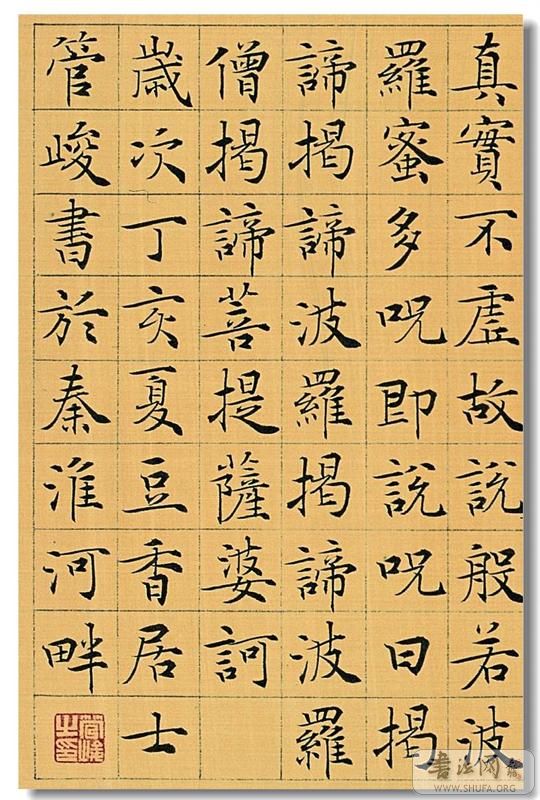 真實不虛故說般若波
羅蜜多呪即說呪曰揭
諦揭諦波羅揭諦波羅
僧揭諦菩提薩婆訶
歲次丁亥夏豆香居士
管峻書於秦淮河畔
管峻之印
書法網
WWW.SHUFA.ORG